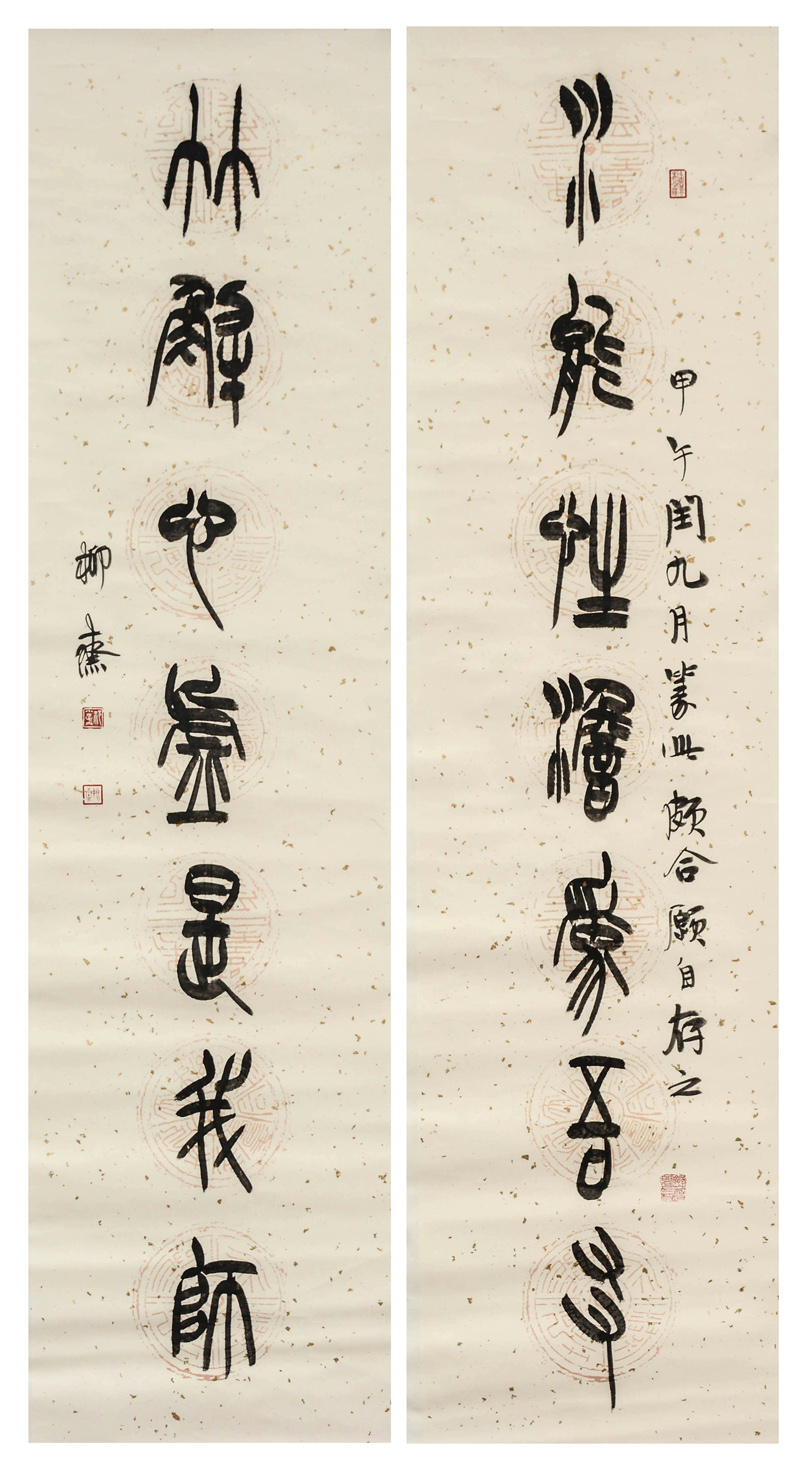 水能性澹爲吾友
甲午閏九月篆此頗合願自存之
竹解心虛是我師
柳齋